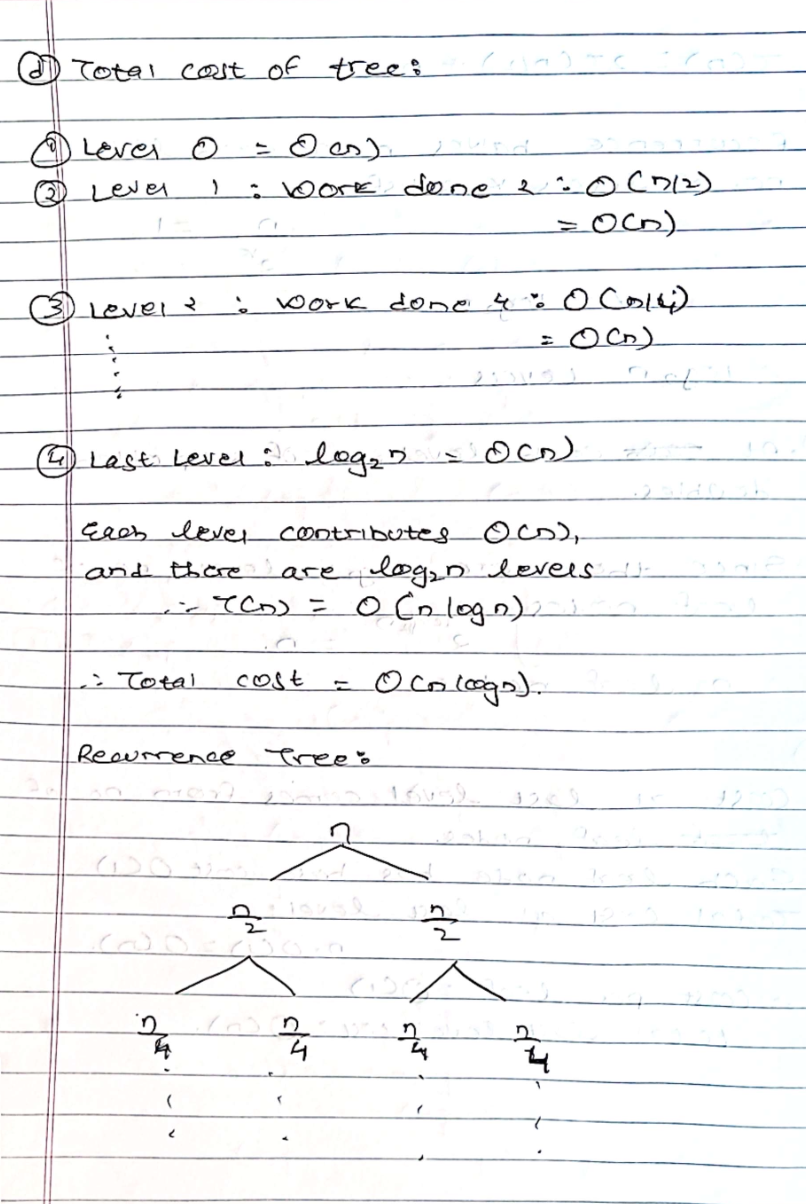 (d) Total cost of tree:
(1) Level 0 = O(n)
(2) Level 1 : Work done 2 : O(n/2)
= O(n)
(3) Level 2 : Work done 4 : O(n/4)
= O(n)
(4) Last Level : log₂n = O(n)
Each level contributes O(n),
and there are log₂n levels
∴ T(n) = O(n log n)
∴ Total cost = O(n logn).
Recurrence Tree:
n
n/2 n/2
n/4 n/4 n/4 n/4